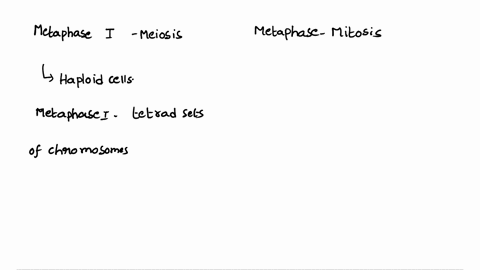 Metaphase I - Meiosis
Metaphase - Mitosis
↳ Haploid cells
Metaphase I - tetrad sets
of chromosomes